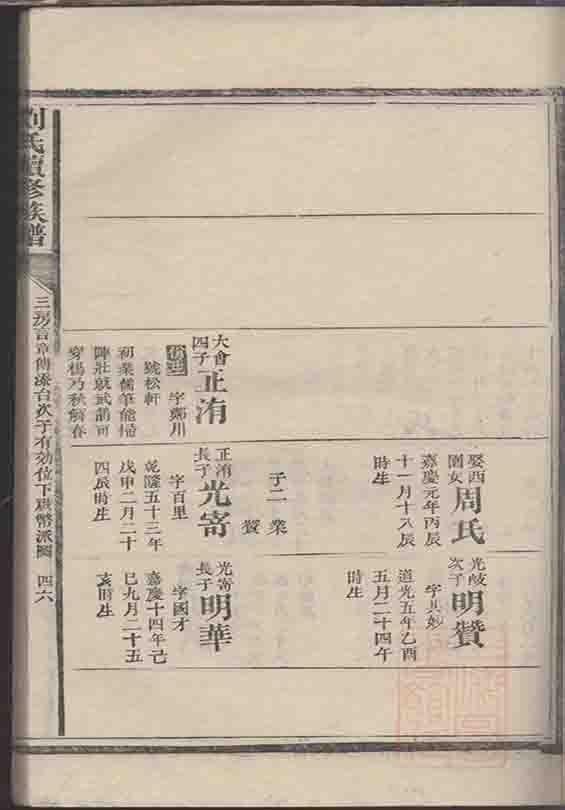 娶西
園女
周氏
嘉慶元年丙辰
十一月十八辰
時生
子二 業
贊
光岐
次子
明贊
字其妙
道光五年乙酉
五月二十四午
時生
大會
四子
正洧
字鄭川
號松軒
初業儒筆能掃
陣壯就武箭可
穿楊乃秋鶚春
正洧
長子
光寄
字百里
乾隆五十三年
戊申二月二十
四辰時生
光寄
長子
明華
字國才
嘉慶十四年己
巳九月二十五
亥時生
劉氏續修族譜
三房言章傅添台次子有効位下
派圖 四六